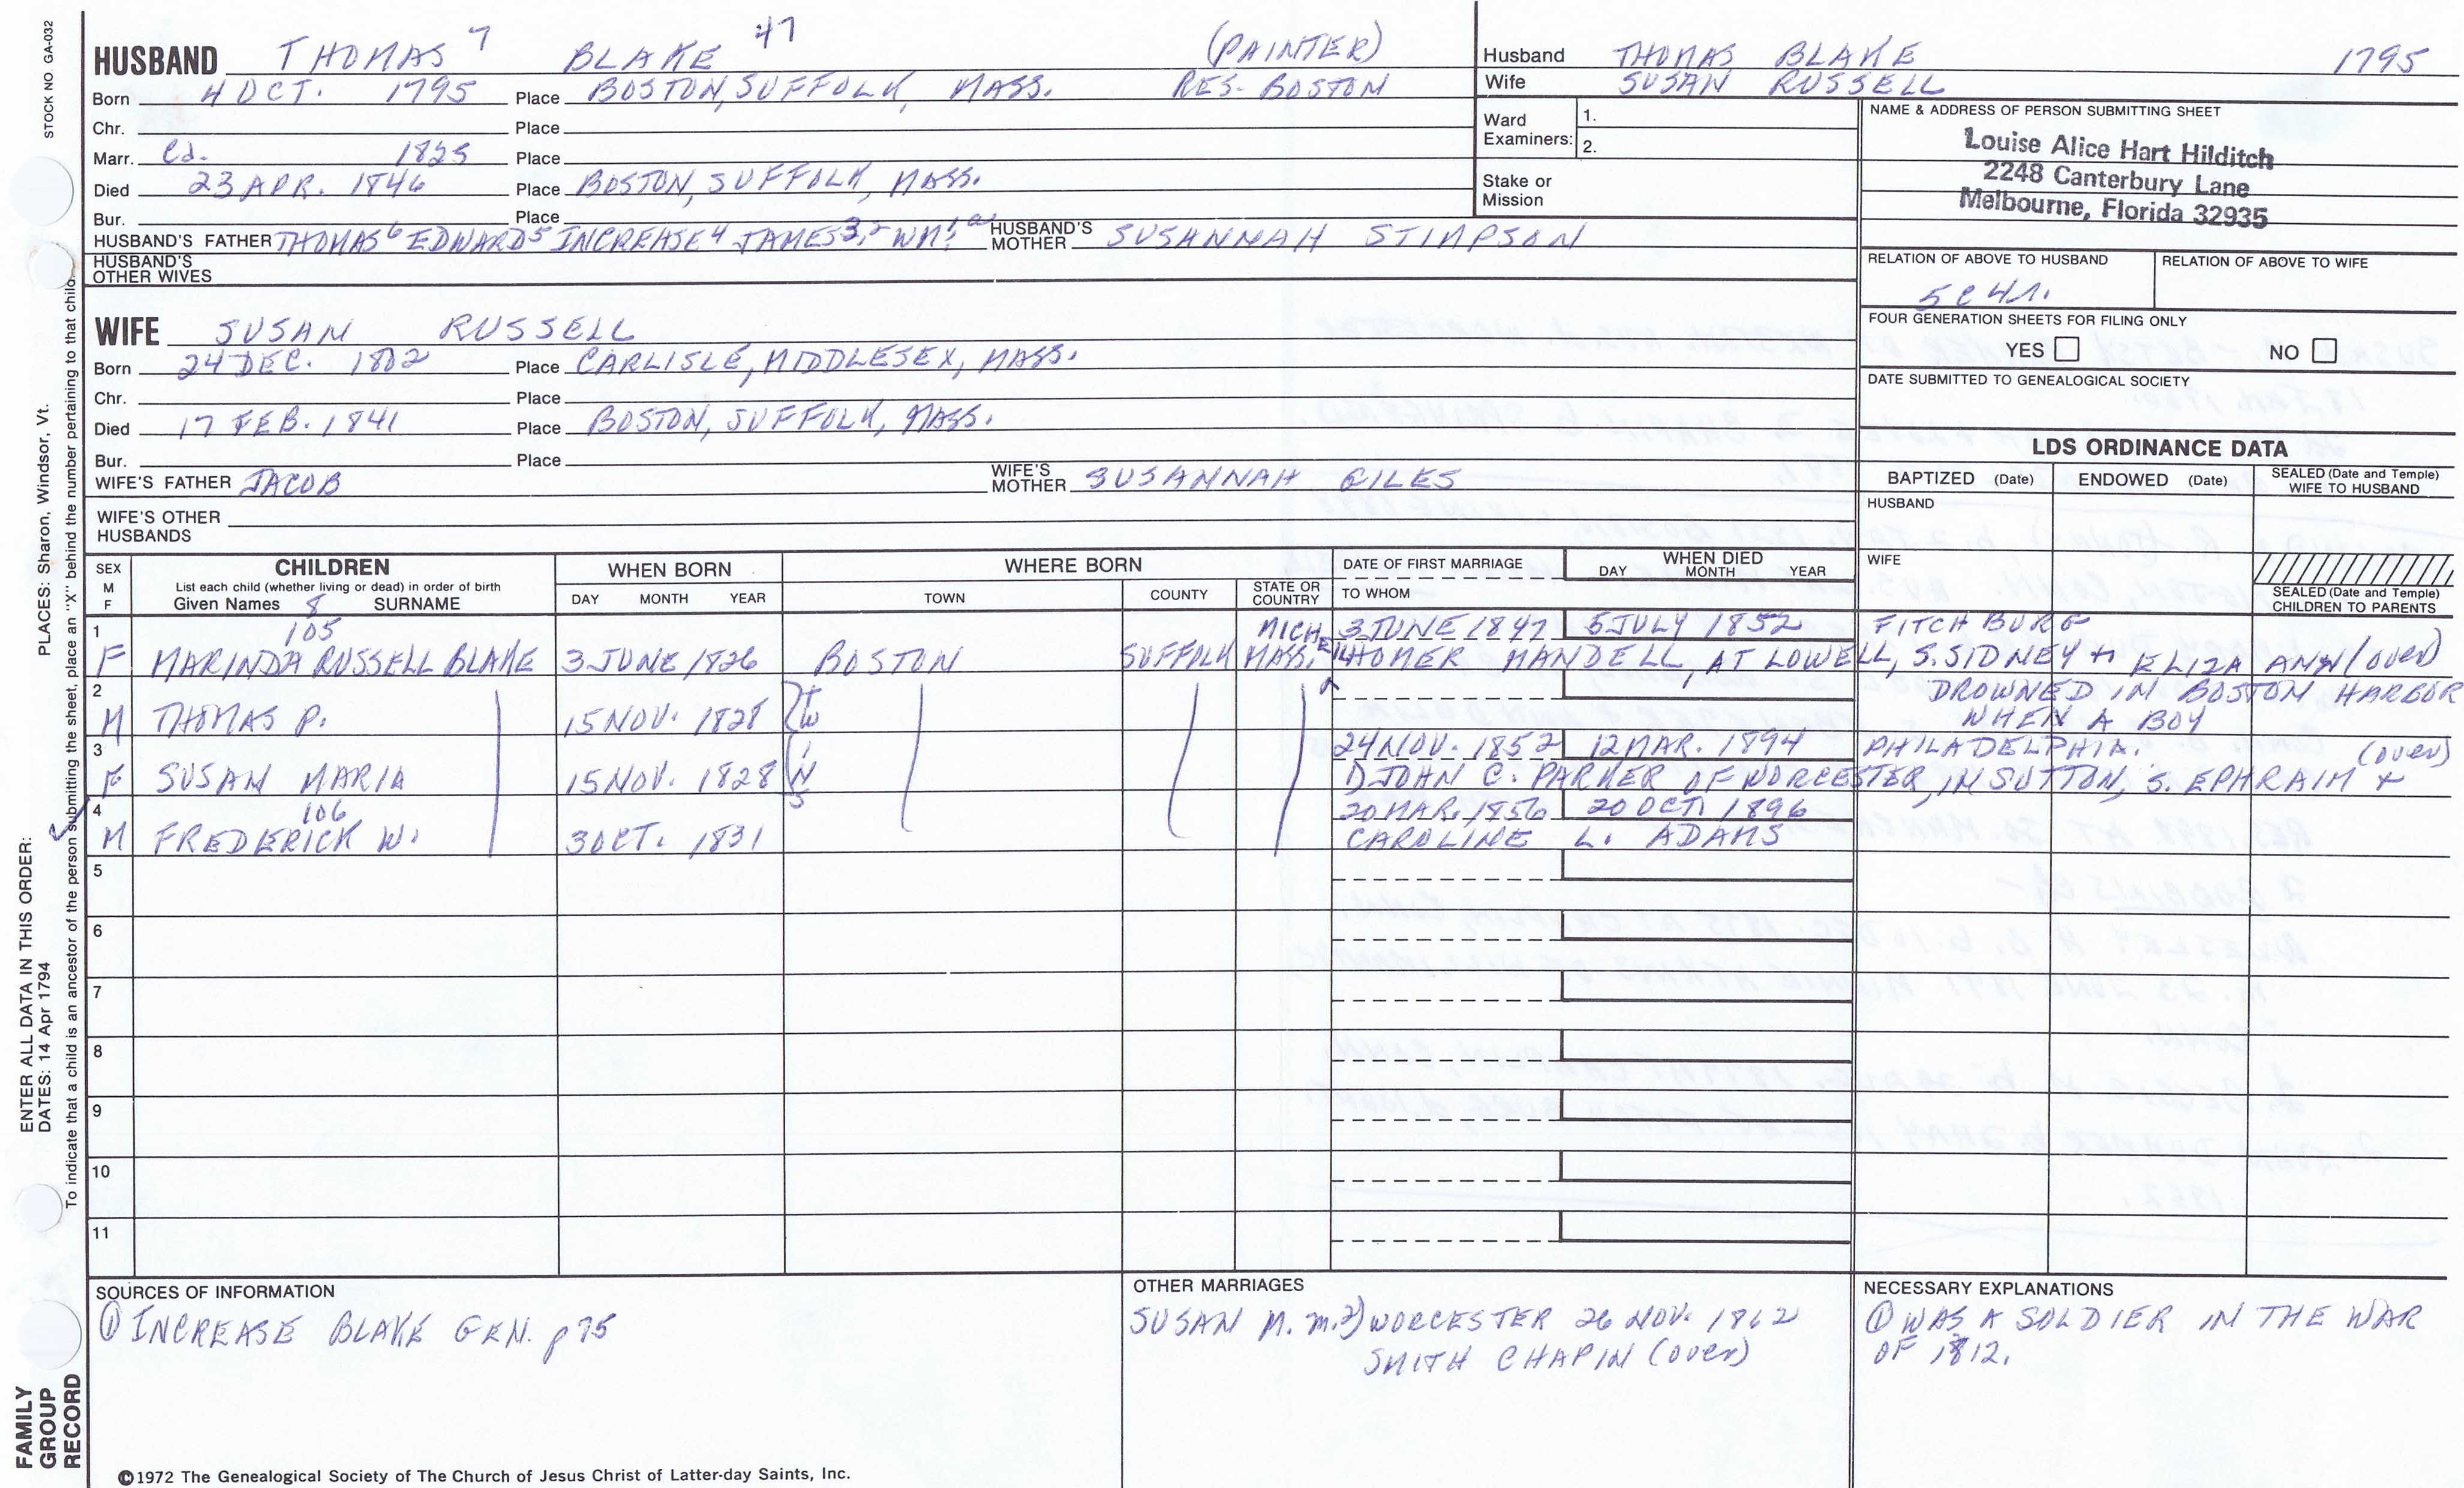 STOCK NO GA-032
HUSBAND THOMAS 7 BLAKE 47 (PAINTER)
Born 4 OCT. 1795 Place BOSTON, SUFFOLK, MASS. RES- BOSTON
Chr. Place
Marr. Ca. 1825 Place
Died 23 APR. 1846 Place BOSTON, SUFFOLK, MASS.
Bur. Place
HUSBAND'S FATHER THOMAS6 EDWARD5 INCREASE4 JAMES3,2 WM1 HUSBAND'S MOTHER SUSANNAH STIMPSON
HUSBAND'S OTHER WIVES
Husband THOMAS BLAKE 1795
Wife SUSAN RUSSELL
Ward Examiners: 1.
2.
Stake or Mission
NAME & ADDRESS OF PERSON SUBMITTING SHEET
Louise Alice Hart Hilditch
2248 Canterbury Lane
Melbourne, Florida 32935
RELATION OF ABOVE TO HUSBAND RELATION OF ABOVE TO WIFE
5C4r.
FOUR GENERATION SHEETS FOR FILING ONLY
YES NO
DATE SUBMITTED TO GENEALOGICAL SOCIETY
WIFE SUSAN RUSSELL
Born 24 DEC. 1802 Place CARLISLE, MIDDLESEX, MASS.
Chr. Place
Died 17 FEB. 1841 Place BOSTON, SUFFOLK, MASS.
Bur. Place
WIFE'S FATHER JACOB WIFE'S MOTHER SUSANNAH GILES
WIFE'S OTHER HUSBANDS
LDS ORDINANCE DATA
BAPTIZED (Date) ENDOWED (Date) SEALED (Date and Temple) WIFE TO HUSBAND
HUSBAND
WIFE
SEALED (Date and Temple) CHILDREN TO PARENTS
SEX M F
CHILDREN
List each child (whether living or dead) in order of birth
Given Names 8 SURNAME
WHEN BORN
DAY MONTH YEAR
WHERE BORN
TOWN COUNTY STATE OR COUNTRY
DATE OF FIRST MARRIAGE
TO WHOM
WHEN DIED
DAY MONTH YEAR
1 105 MICH. 3 JUNE 1847 5 JULY 1852 FITCHBURG
F MARINDA RUSSELL BLAKE 3 JUNE 1826 BOSTON SUFFOLK MASS. HOMER MANDELL, AT LOWELL, S. SIDNEY + ELIZA ANN (over)
2 DROWNED IN BOSTON HARBOR
M THOMAS P. 15 NOV. 1828 TW WHEN A BOY
3 24 NOV. 1852 12 MAR. 1894 PHILADELPHIA. (over)
F SUSAN MARIA 15 NOV. 1828 INS 1) JOHN C. PARKER OF WORCESTER, IN SUTTON, S. EPHRAIM +
4 106 20 MAR. 1856 20 OCT. 1896
M FREDERICK W. 3 OCT. 1831 CAROLINE L. ADAMS
5
6
7
8
9
10
11
SOURCES OF INFORMATION
① INCREASE BLAKE GEN. p 75
OTHER MARRIAGES
SUSAN M. m. 2) WORCESTER 26 NOV. 1862
SMITH CHAPIN (over)
NECESSARY EXPLANATIONS
① WAS A SOLDIER IN THE WAR
OF 1812.
©1972 The Genealogical Society of The Church of Jesus Christ of Latter-day Saints, Inc.
PLACES: Sharon, Windsor, Vt.
ENTER ALL DATA IN THIS ORDER:
DATES: 14 Apr 1794
To indicate that a child is an ancestor of the person submitting the sheet, place an "X" behind the number pertaining to that child.
FAMILY
GROUP
RECORD